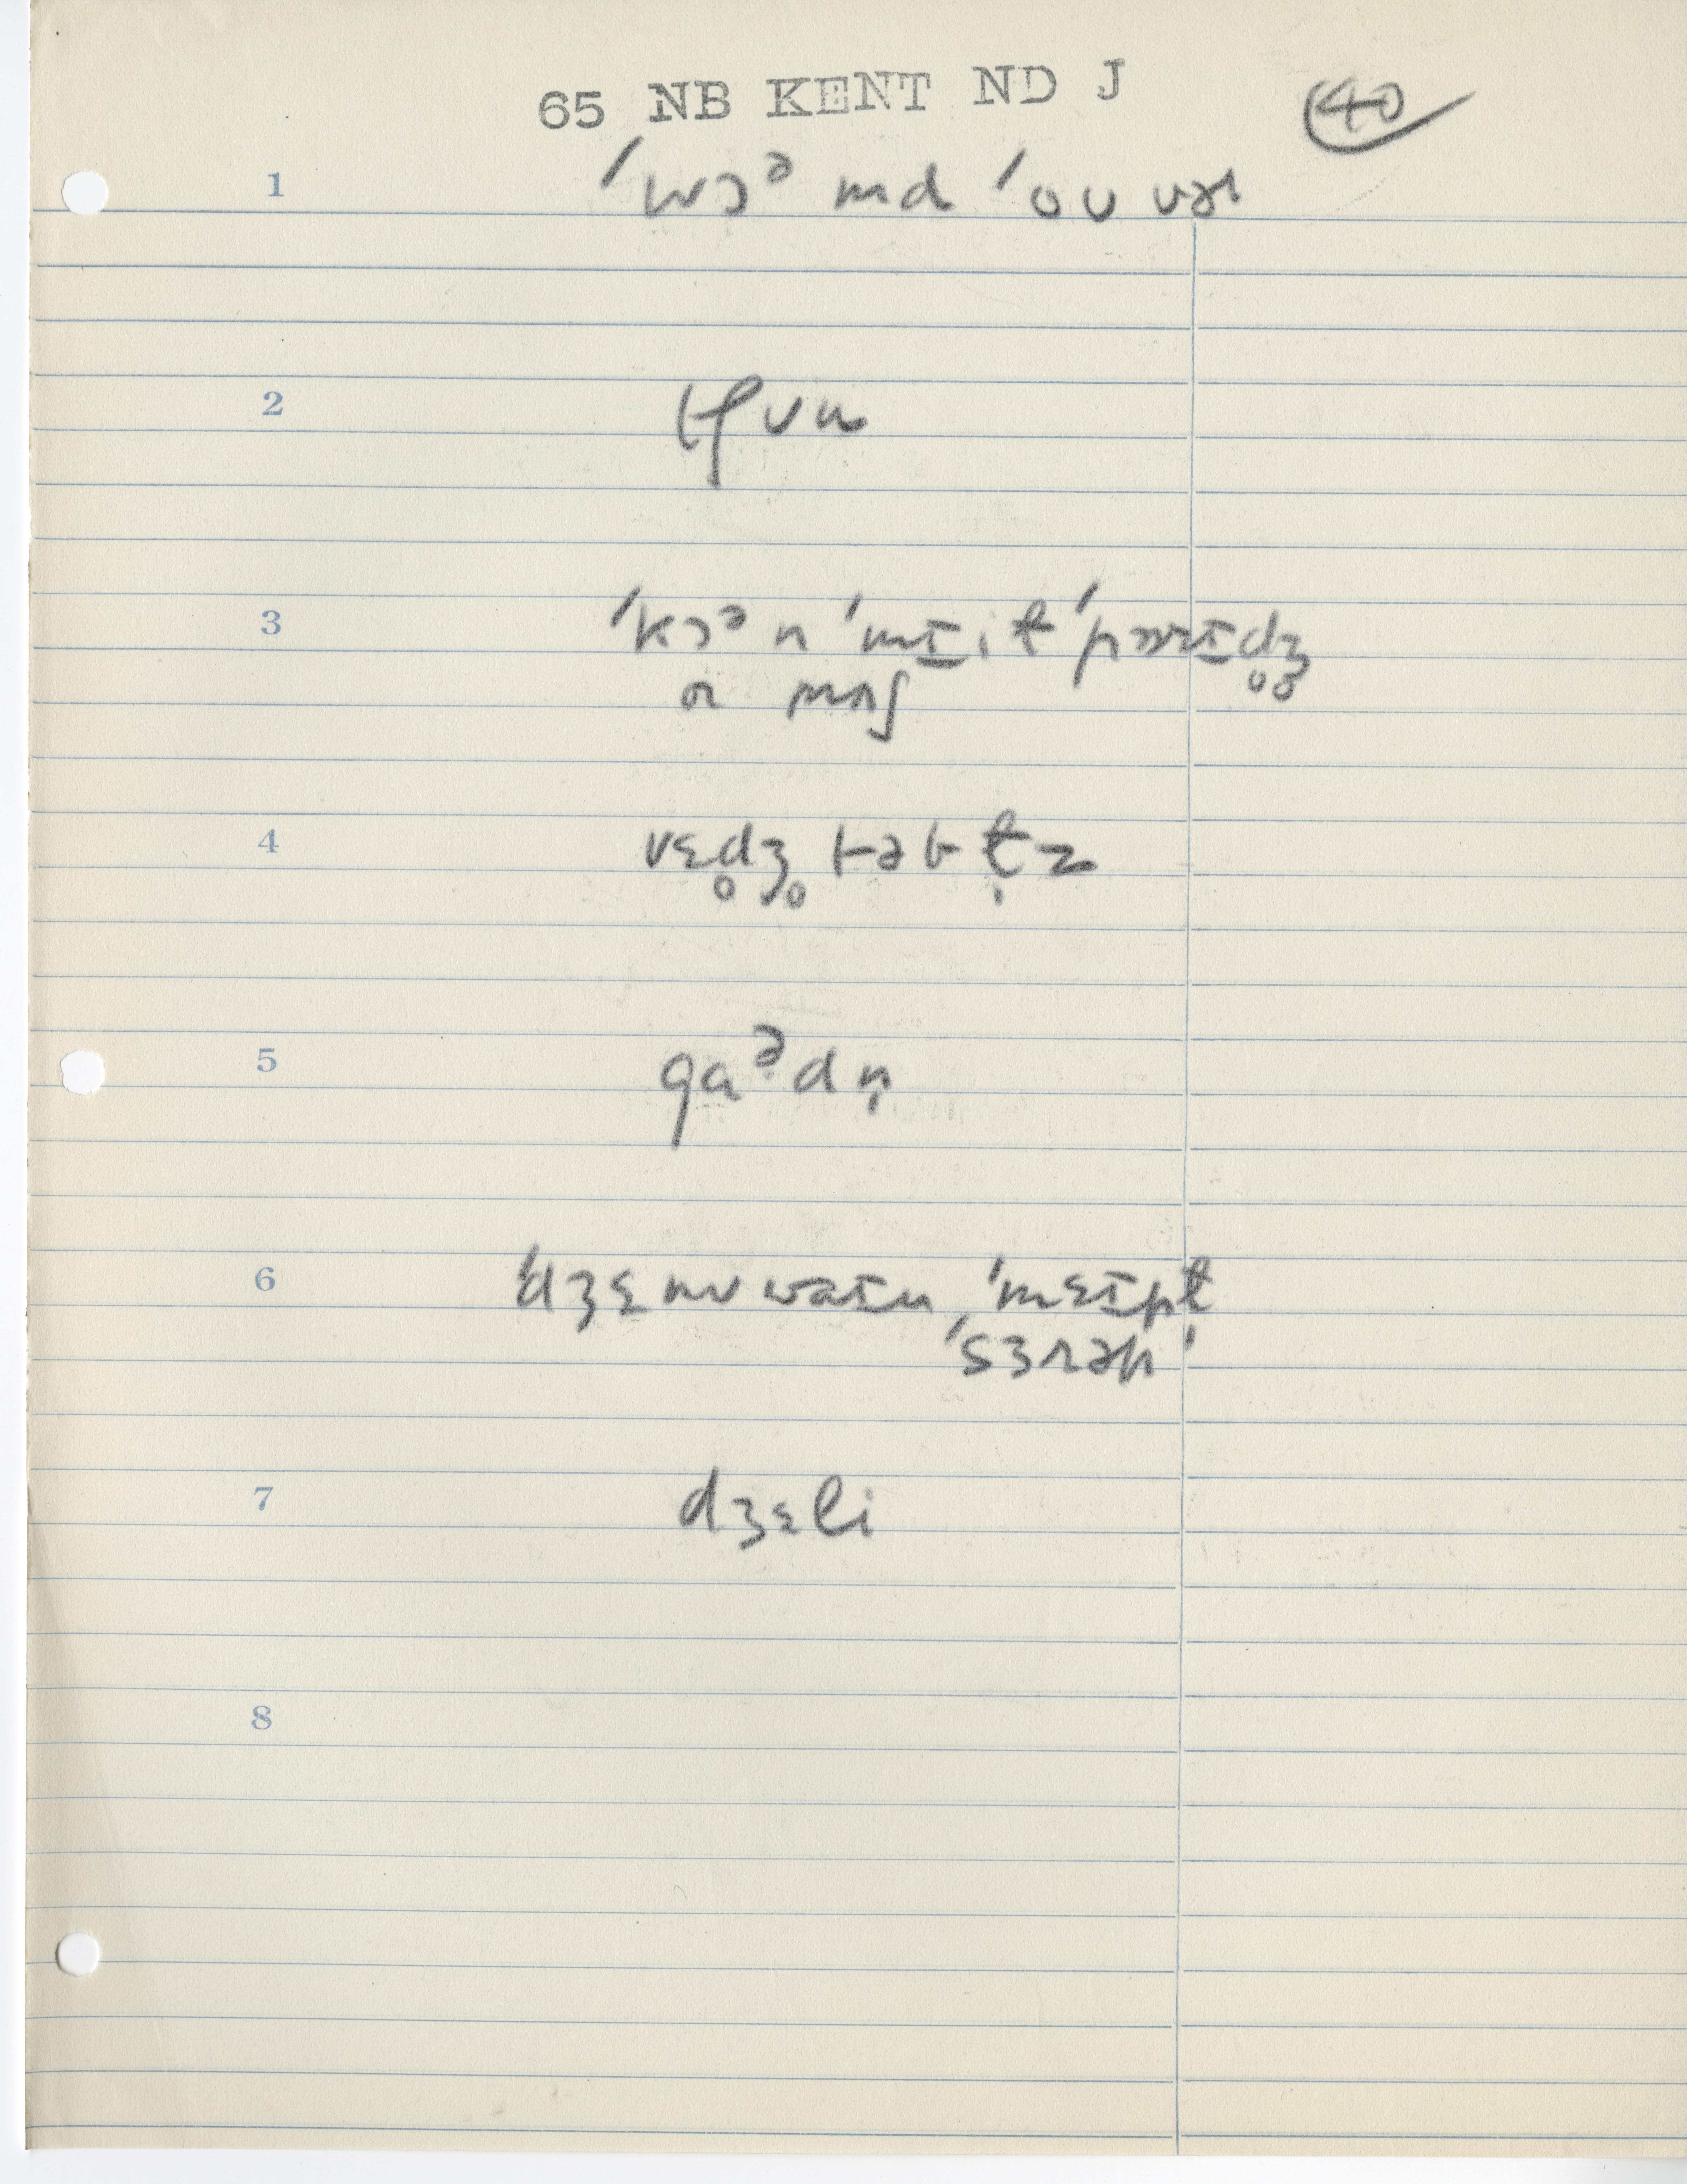 65 NB KENT ND J
40
1 ˈwɔᵊ md ˈoʊ vər
2
3 ˈkɔᵊ n ˈmɪ̠i t ˈpɔrɪ̠dʒ̥
or mʌʃ
4 vɛd̥ʒ̥ təb ļz
5 gaᵊdn̩
6 ˈdʒɛnʊwaɪn ˈmeɪpļ
ˈsɜrəp
7 dʒɛli
8